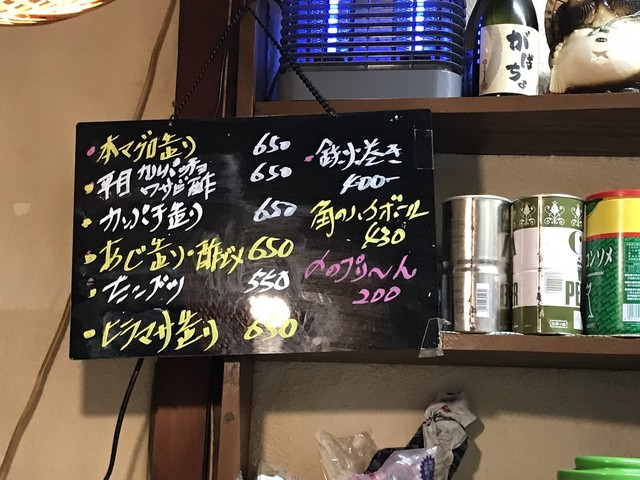 本マグロ造り 650
平目 カルパッチョ
ワサビ酢 650
カンパチ造り 650
あじ造り・酢〆 650
たこブツ 550
ヒラマサ造り 650
鉄火巻き
400-
角のハイボール
430
〆のプリ〜ん
200
がばちょ